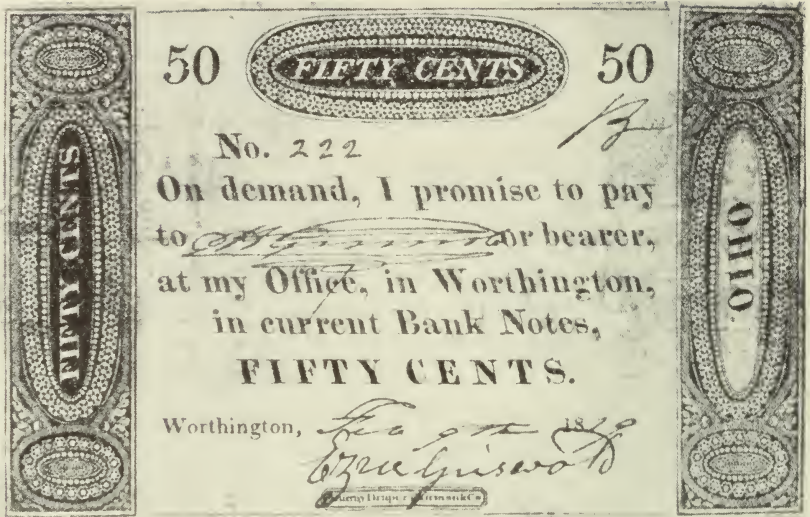 50 FIFTY CENTS 50
FIFTY CENTS
OHIO.
No. 222
On demand, I promise to pay
to or bearer,
at my Office, in Worthington,
in current Bank Notes,
FIFTY CENTS.
Worthington, 18
Ezra Griswold